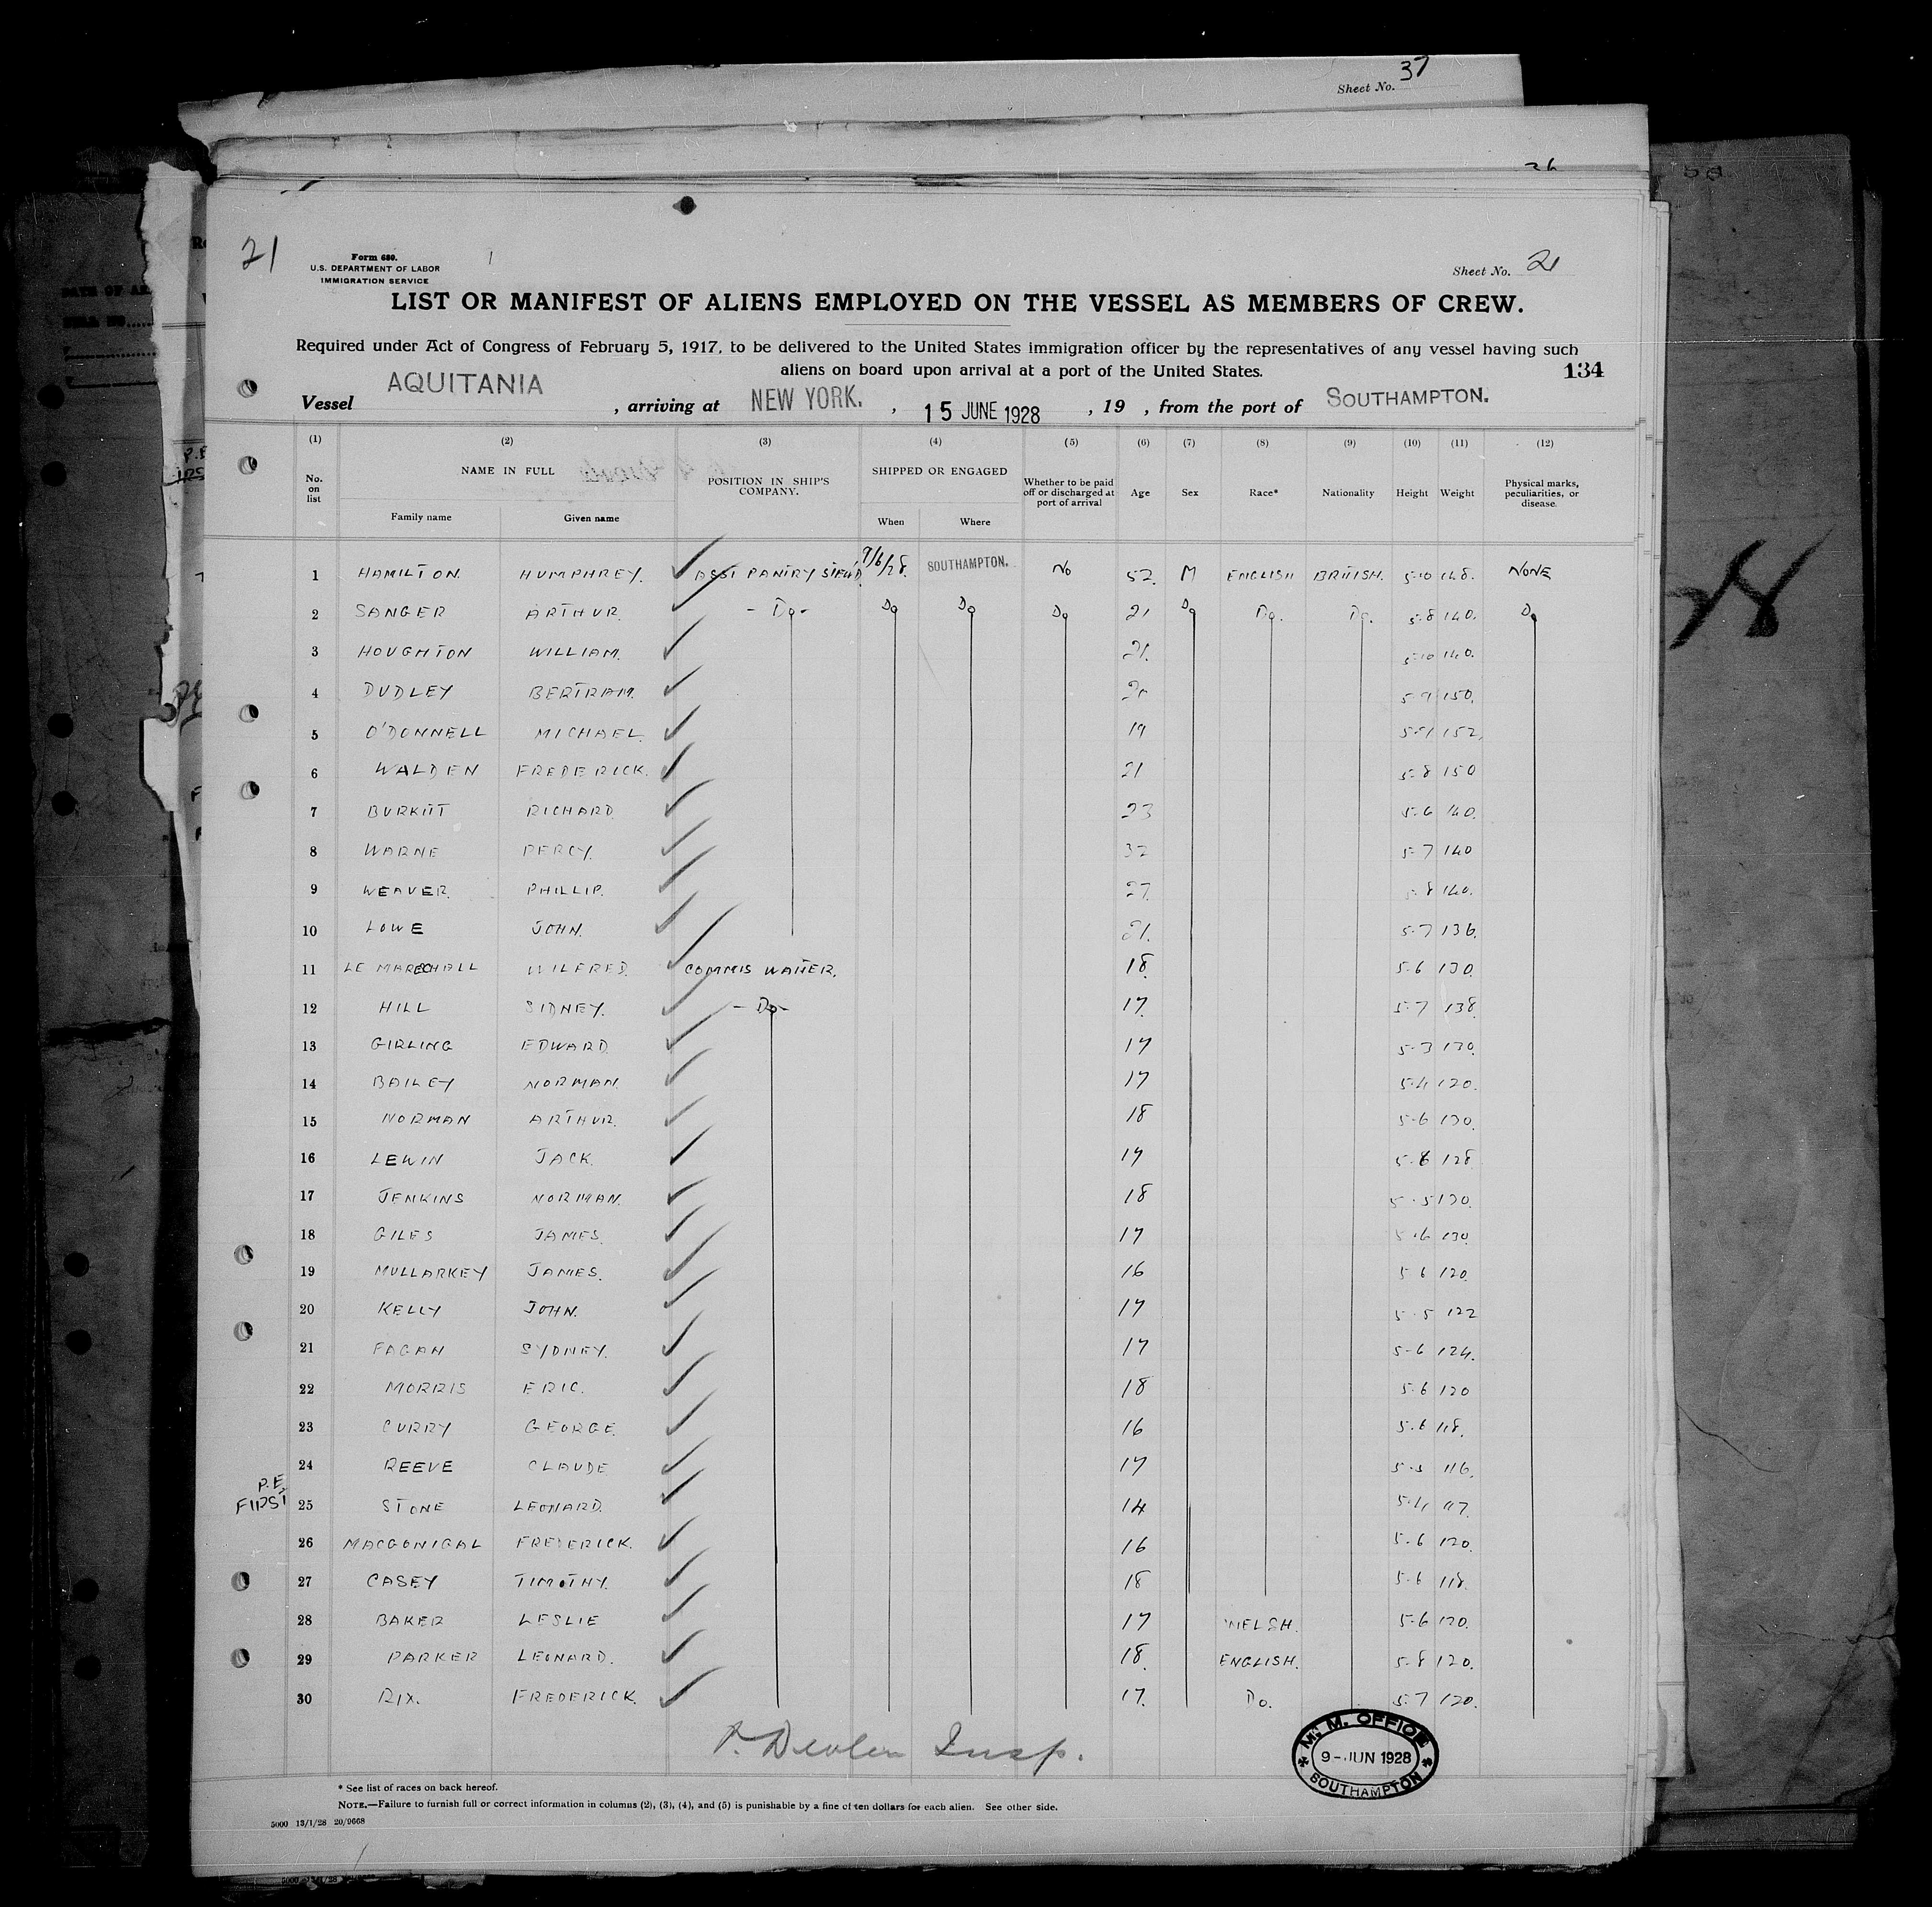 Sheet No. 37
26
21
Form 680.
U.S. DEPARTMENT OF LABOR
IMMIGRATION SERVICE
Sheet No. 21
LIST OR MANIFEST OF ALIENS EMPLOYED ON THE VESSEL AS MEMBERS OF CREW.
Required under Act of Congress of February 5, 1917, to be delivered to the United States immigration officer by the representatives of any vessel having such
aliens on board upon arrival at a port of the United States.
134
Vessel AQUITANIA , arriving at NEW YORK. , 15 JUNE 1928 , 19 , from the port of SOUTHAMPTON.
(1) (2) (3) (4) (5) (6) (7) (8) (9) (10) (11) (12)
No. on list NAME IN FULL Family name Given name POSITION IN SHIP'S COMPANY. SHIPPED OR ENGAGED When Where Whether to be paid off or discharged at port of arrival Age Sex Race* Nationality Height Weight Physical marks, peculiarities, or disease.
1 HAMILTON. HUMPHREY. ASST PANTRY STEW'D 9/6/28. SOUTHAMPTON. NO 52. M ENGLISH BRITISH. 5-10 148. NONE
2 SANGER ARTHUR. - Do - Do Do Do 21 Do Do. Do. 5-8 140. Do
3 HOUGHTON WILLIAM. 21. 5-10 140.
4 DUDLEY BERTRAM. 5-9 150.
5 O'DONNELL MICHAEL. 19 152.
6 WALDEN FREDERICK. 21 5-8 150
7 BURKITT RICHARD. 23 5-6 140.
8 WARNE PERCY. 32 5-7 140
9 WEAVER. PHILLIP. 27. 5-8 140.
10 LOWE JOHN. 21. 5-7 136.
11 LE MARECHALL WILFRED. COMMIS WAITER. 18. 5-6 130.
12 HILL SIDNEY. - Do - 17. 5-7 138.
13 GIRLING EDWARD. 17 5-3 130.
14 BAILEY NORMAN. 17 5-4 120.
15 NORMAN ARTHUR. 18 5-6 130.
16 LEWIN JACK. 17 5-6 128.
17 JENKINS NORMAN. 18 5-5 130.
18 GILES JAMES. 17 5-6 130.
19 MULLARKEY JAMES. 16 5-6 120.
20 KELLY JOHN. 17 5-5 122
21 FAGAN SYDNEY. 17 5-6 124.
22 MORRIS ERIC. 18 5-6 120
23 CURRY GEORGE. 16 5-6 118.
24 REEVE CLAUDE 17 5-5 116.
P.E. FIRST 25 STONE LEONARD. 14 5-4 117.
26 MACGONIGAL FREDERICK. 16 5-6 120.
27 CASEY TIMOTHY. 18 5-6 118.
28 BAKER LESLIE 17 WELSH. 5-6 120.
29 PARKER LEONARD. 18. ENGLISH. 5-8 120.
30 RIX. FREDERICK. 17. Do. 5-7 120.
P. Devlin Insp.
M. M. OFFICE
9-JUN 1928
SOUTHAMPTON
* See list of races on back hereof.
NOTE.—Failure to furnish full or correct information in columns (2), (3), (4), and (5) is punishable by a fine of ten dollars for each alien. See other side.
5000 13/1/28 20/9668